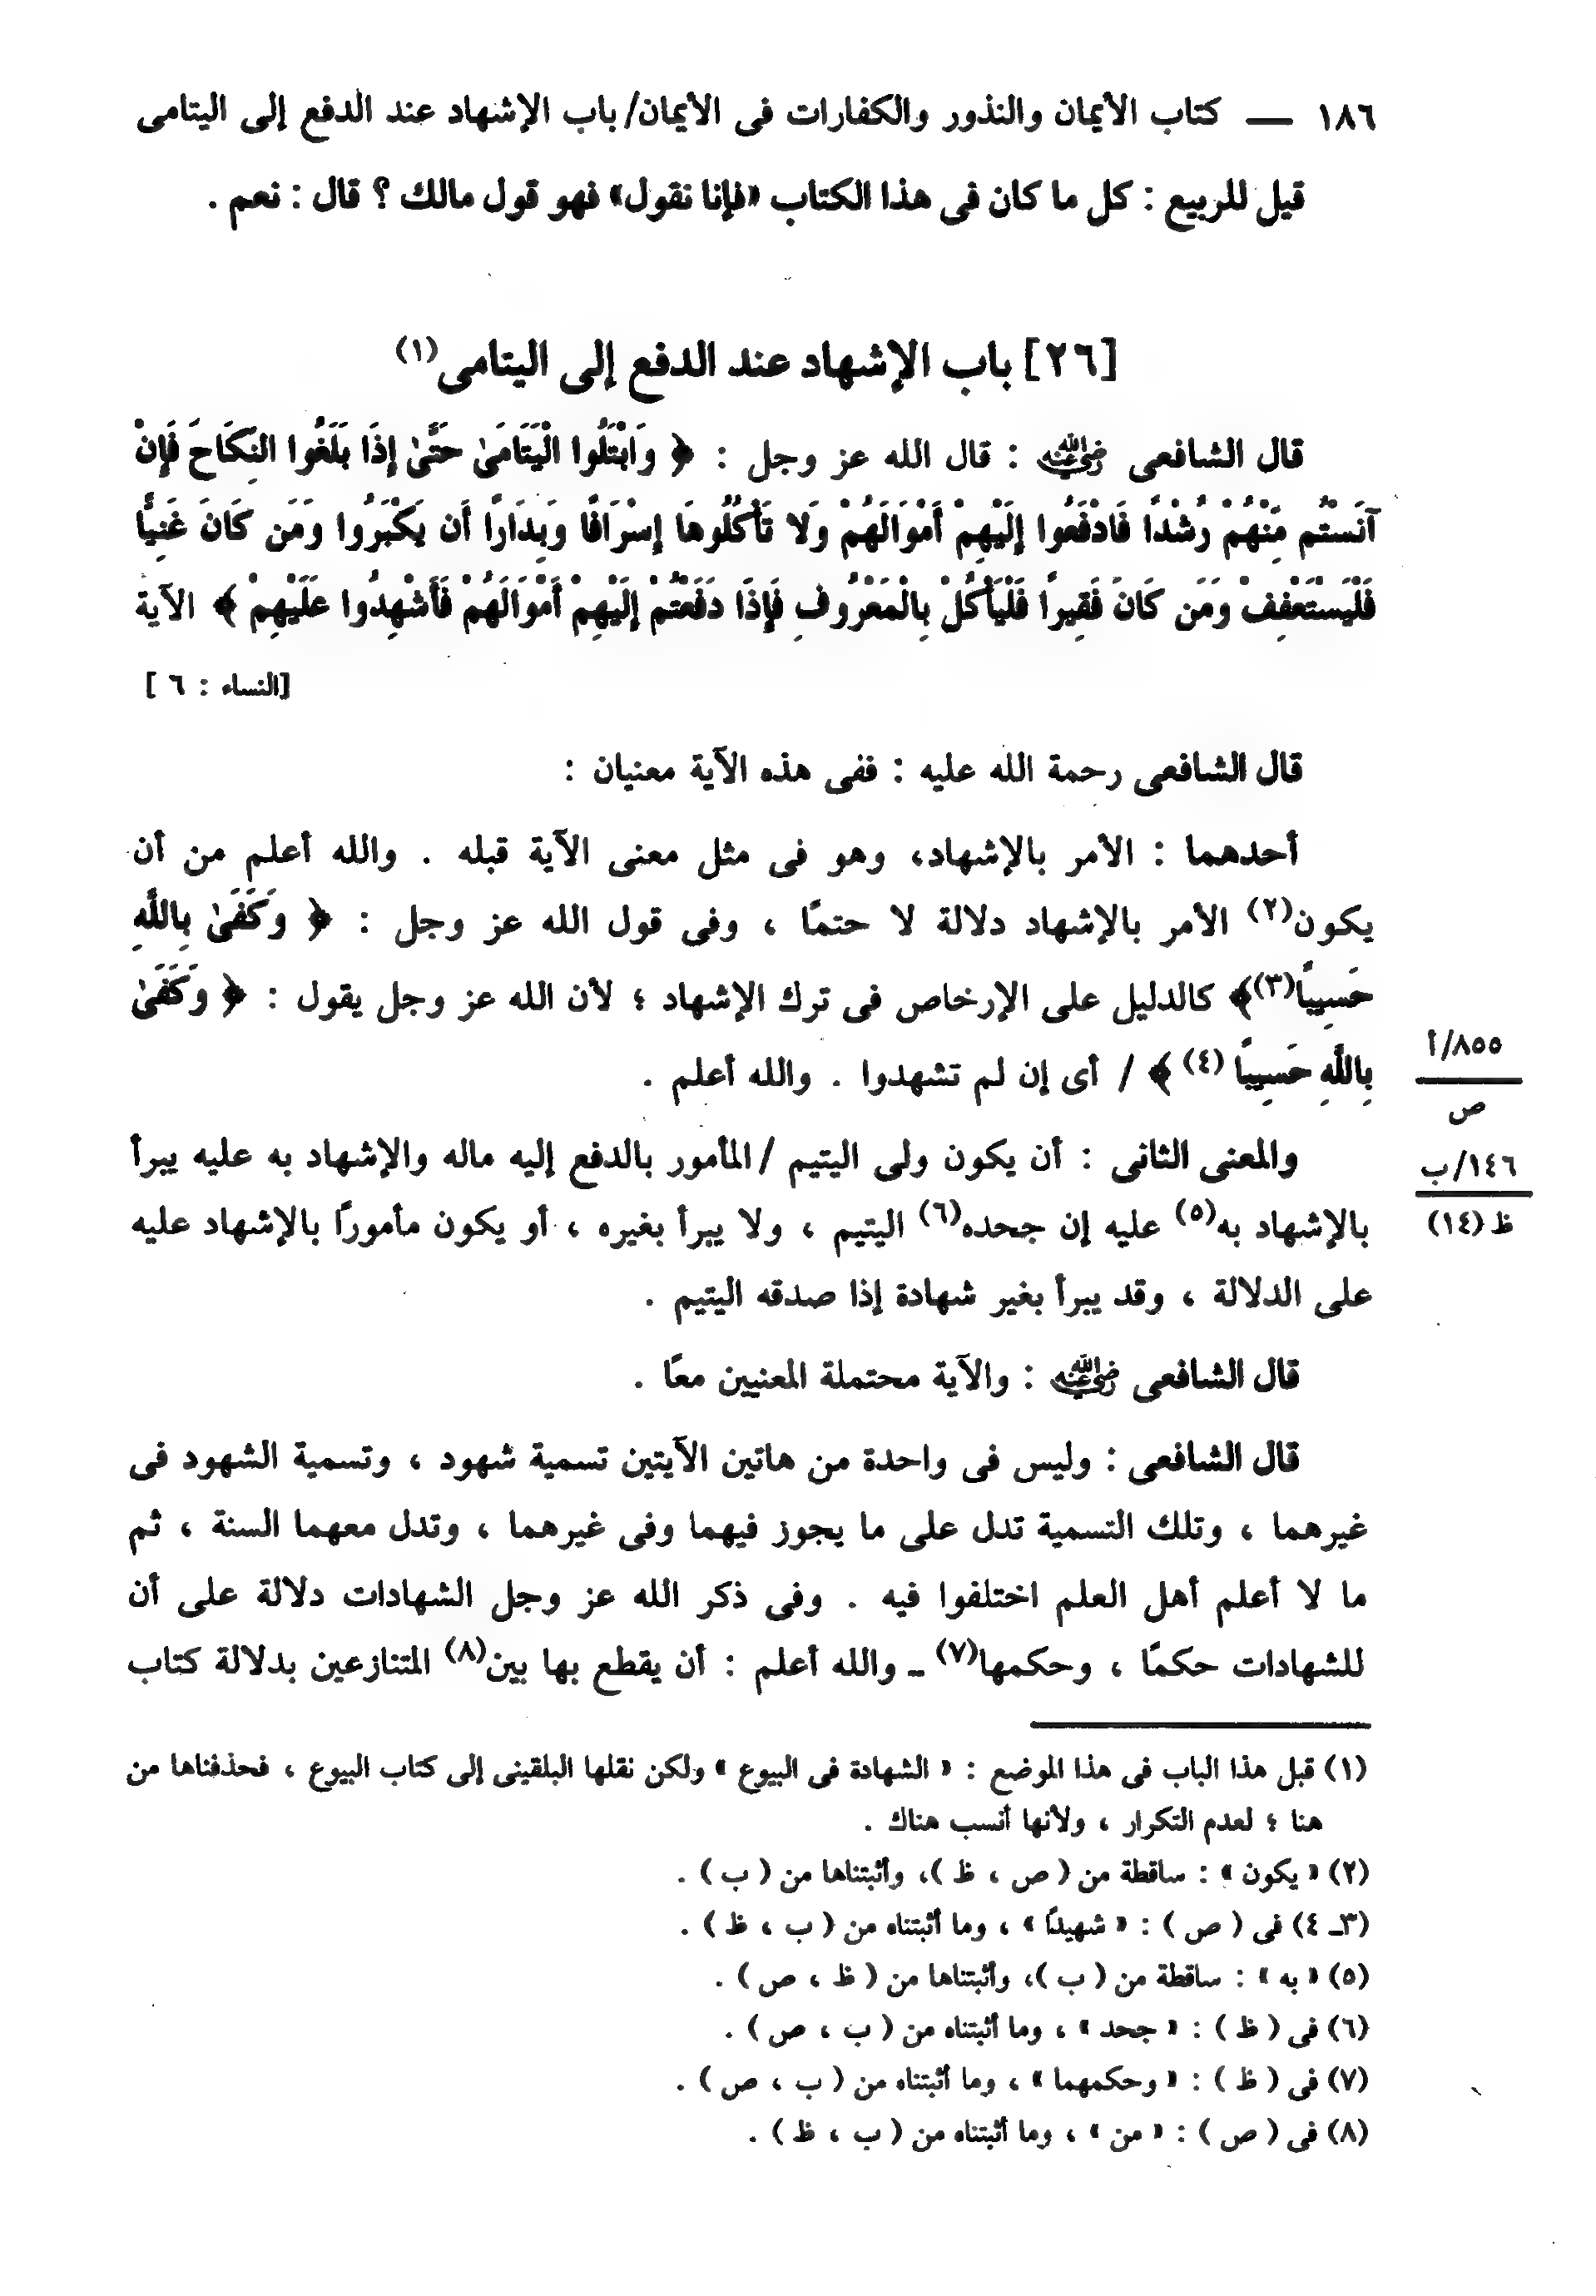 ١٨٦ — كتاب الأيمان والنذور والكفارات فى الأيمان/ باب الإشهاد عند الدفع إلى اليتامى
قيل للربيع : كل ما كان فى هذا الكتاب «فإنا نقول» فهو قول مالك ؟ قال : نعم .
[٢٦] باب الإشهاد عند الدفع إلى اليتامى(١)
قال الشافعى رضي الله عنه : قال الله عز وجل : ﴿ وَابْتَلُوا الْيَتَامَىٰ حَتَّىٰ إِذَا بَلَغُوا النِّكَاحَ فَإِنْ
آنَسْتُم مِّنْهُمْ رُشْدًا فَادْفَعُوا إِلَيْهِمْ أَمْوَالَهُمْ وَلا تَأْكُلُوهَا إِسْرَافًا وَبِدَارًا أَن يَكْبَرُوا وَمَن كَانَ غَنِيًّا
فَلْيَسْتَعْفِفْ وَمَن كَانَ فَقِيرًا فَلْيَأْكُلْ بِالْمَعْرُوفِ فَإِذَا دَفَعْتُمْ إِلَيْهِمْ أَمْوَالَهُمْ فَأَشْهِدُوا عَلَيْهِمْ ﴾ الآية
[النساء : ٦ ]
قال الشافعى رحمة الله عليه : ففى هذه الآية معنيان :
أحدهما : الأمر بالإشهاد، وهو فى مثل معنى الآية قبله . والله أعلم من أن
يكون(٢) الأمر بالإشهاد دلالة لا حتمًا ، وفى قول الله عز وجل : ﴿ وَكَفَىٰ بِاللَّهِ
حَسِيبًا(٣)﴾ كالدليل على الإرخاص فى ترك الإشهاد ؛ لأن الله عز وجل يقول : ﴿ وَكَفَىٰ
بِاللَّهِ حَسِيبًا (٤) ﴾ / أى إن لم تشهدوا . والله أعلم .
٨٥٥/أ
ص
والمعنى الثانى : أن يكون ولى اليتيم /المأمور بالدفع إليه ماله والإشهاد به عليه يبرأ
١٤٦/ب
بالإشهاد به(٥) عليه إن جحده(٦) اليتيم ، ولا يبرأ بغيره ، أو يكون مأمورًا بالإشهاد عليه
ظ (١٤)
على الدلالة ، وقد يبرأ بغير شهادة إذا صدقه اليتيم .
قال الشافعى رضي الله عنه : والآية محتملة المعنيين معًا .
قال الشافعى : وليس فى واحدة من هاتين الآيتين تسمية شهود ، وتسمية الشهود فى
غيرهما ، وتلك التسمية تدل على ما يجوز فيهما وفى غيرهما ، وتدل معهما السنة ، ثم
ما لا أعلم أهل العلم اختلفوا فيه . وفى ذكر الله عز وجل الشهادات دلالة على أن
للشهادات حكمًا ، وحكمها(٧) ـ والله أعلم : أن يقطع بها بين(٨) المتنازعين بدلالة كتاب
(١) قبل هذا الباب فى هذا الموضع : « الشهادة فى البيوع » ولكن نقلها البلقينى إلى كتاب البيوع ، فحذفناها من
هنا ؛ لعدم التكرار ، ولأنها أنسب هناك .
(٢) « يكون » : ساقطة من ( ص ، ظ )، وأثبتناها من ( ب ) .
(٣ـ ٤) فى ( ص ) : « شهيدًا » ، وما أثبتناه من ( ب ، ظ ) .
(٥) « به » : ساقطة من ( ب )، وأثبتناها من ( ظ ، ص ) .
(٦) فى ( ظ ) : « جحد » ، وما أثبتناه من ( ب ، ص ) .
(٧) فى ( ظ ) : « وحكمهما » ، وما أثبتناه من ( ب ، ص ) .
(٨) فى ( ص ) : « من » ، وما أثبتناه من ( ب ، ظ ) .